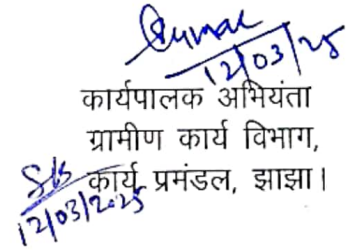 Kumar
12/03/25
कार्यपालक अभियंता
ग्रामीण कार्य विभाग,
कार्य प्रमंडल, झाझा।
12/03/2025